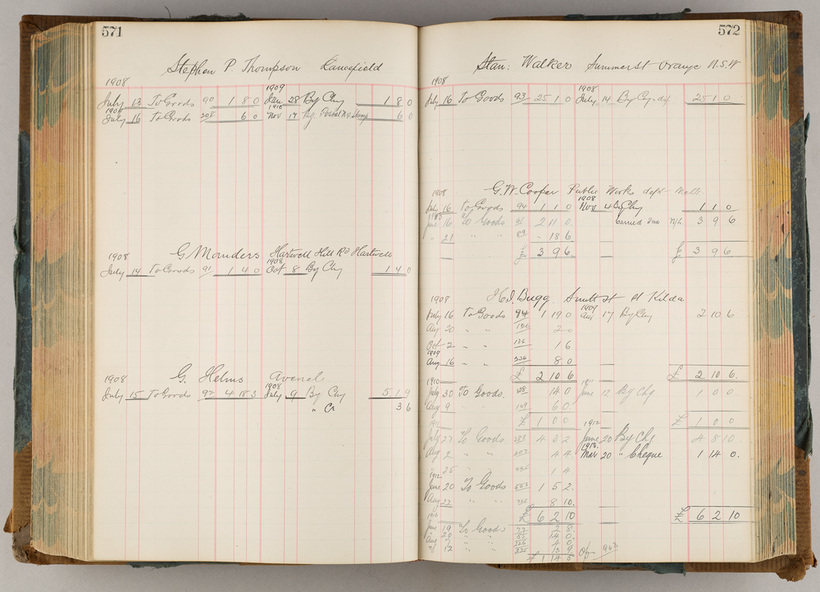 571
Stephen P. Thompson Lancefield
1908 1909
July 13 To Goods 90 1 8 0 Jan 28 By Chq 1 8 0
July 16 To Goods 208 6 0 Nov 17 By 6 0
G. Maunders Hartwell Hill Rd Hartwell
1908 1908
July 14 To Goods 91 1 4 0 Oct 8 By Chq 1 4 0
G. Helms Avenel
1908 1908
July 15 To Goods 92 4 18 3 July 9 By Chq 5 1 9
" Cr 3 6
572
Stan. Walker Summer St Orange N.S.W
1908 1908
July 16 To Goods 93 25 1 0 July 14 By Chq 25 1 0
G. W. Cooper Public Works dept Melb
1908 1908
July 16 To Goods 94 1 1 0 Nov 4 By Chq 1 1 0
June 16 To Goods 2 11 0 3 9 6
" 21 18 6
£ 3 9 6 £ 3 9 6
H. I. Bugg Smith St St Kilda
1908 1909
July 16 To Goods 94 1 19 0 17 By Chq 2 10 6
Aug 20 " " 2 0
Oct 2 " " 1 6
1909
Aug 16 " " 8 0
£ 2 10 6 £ 2 10 6
1910
July 30 To Goods 14 0 June 12 By Chq 1 0 0
Aug 9 6 0
£ 1 0 0 £ 1 0 0
July 27 To Goods 4 3 2 June 20 By Chq 4 8 10
Aug 2 " " 4 4 Mar 20 " Cheque 1 14 0
" 25 " " 1 4
June 20 To Goods 1 5 2
Aug 22 " " 8 10
£ 6 2 10 £ 6 2 10
June 19 To Goods